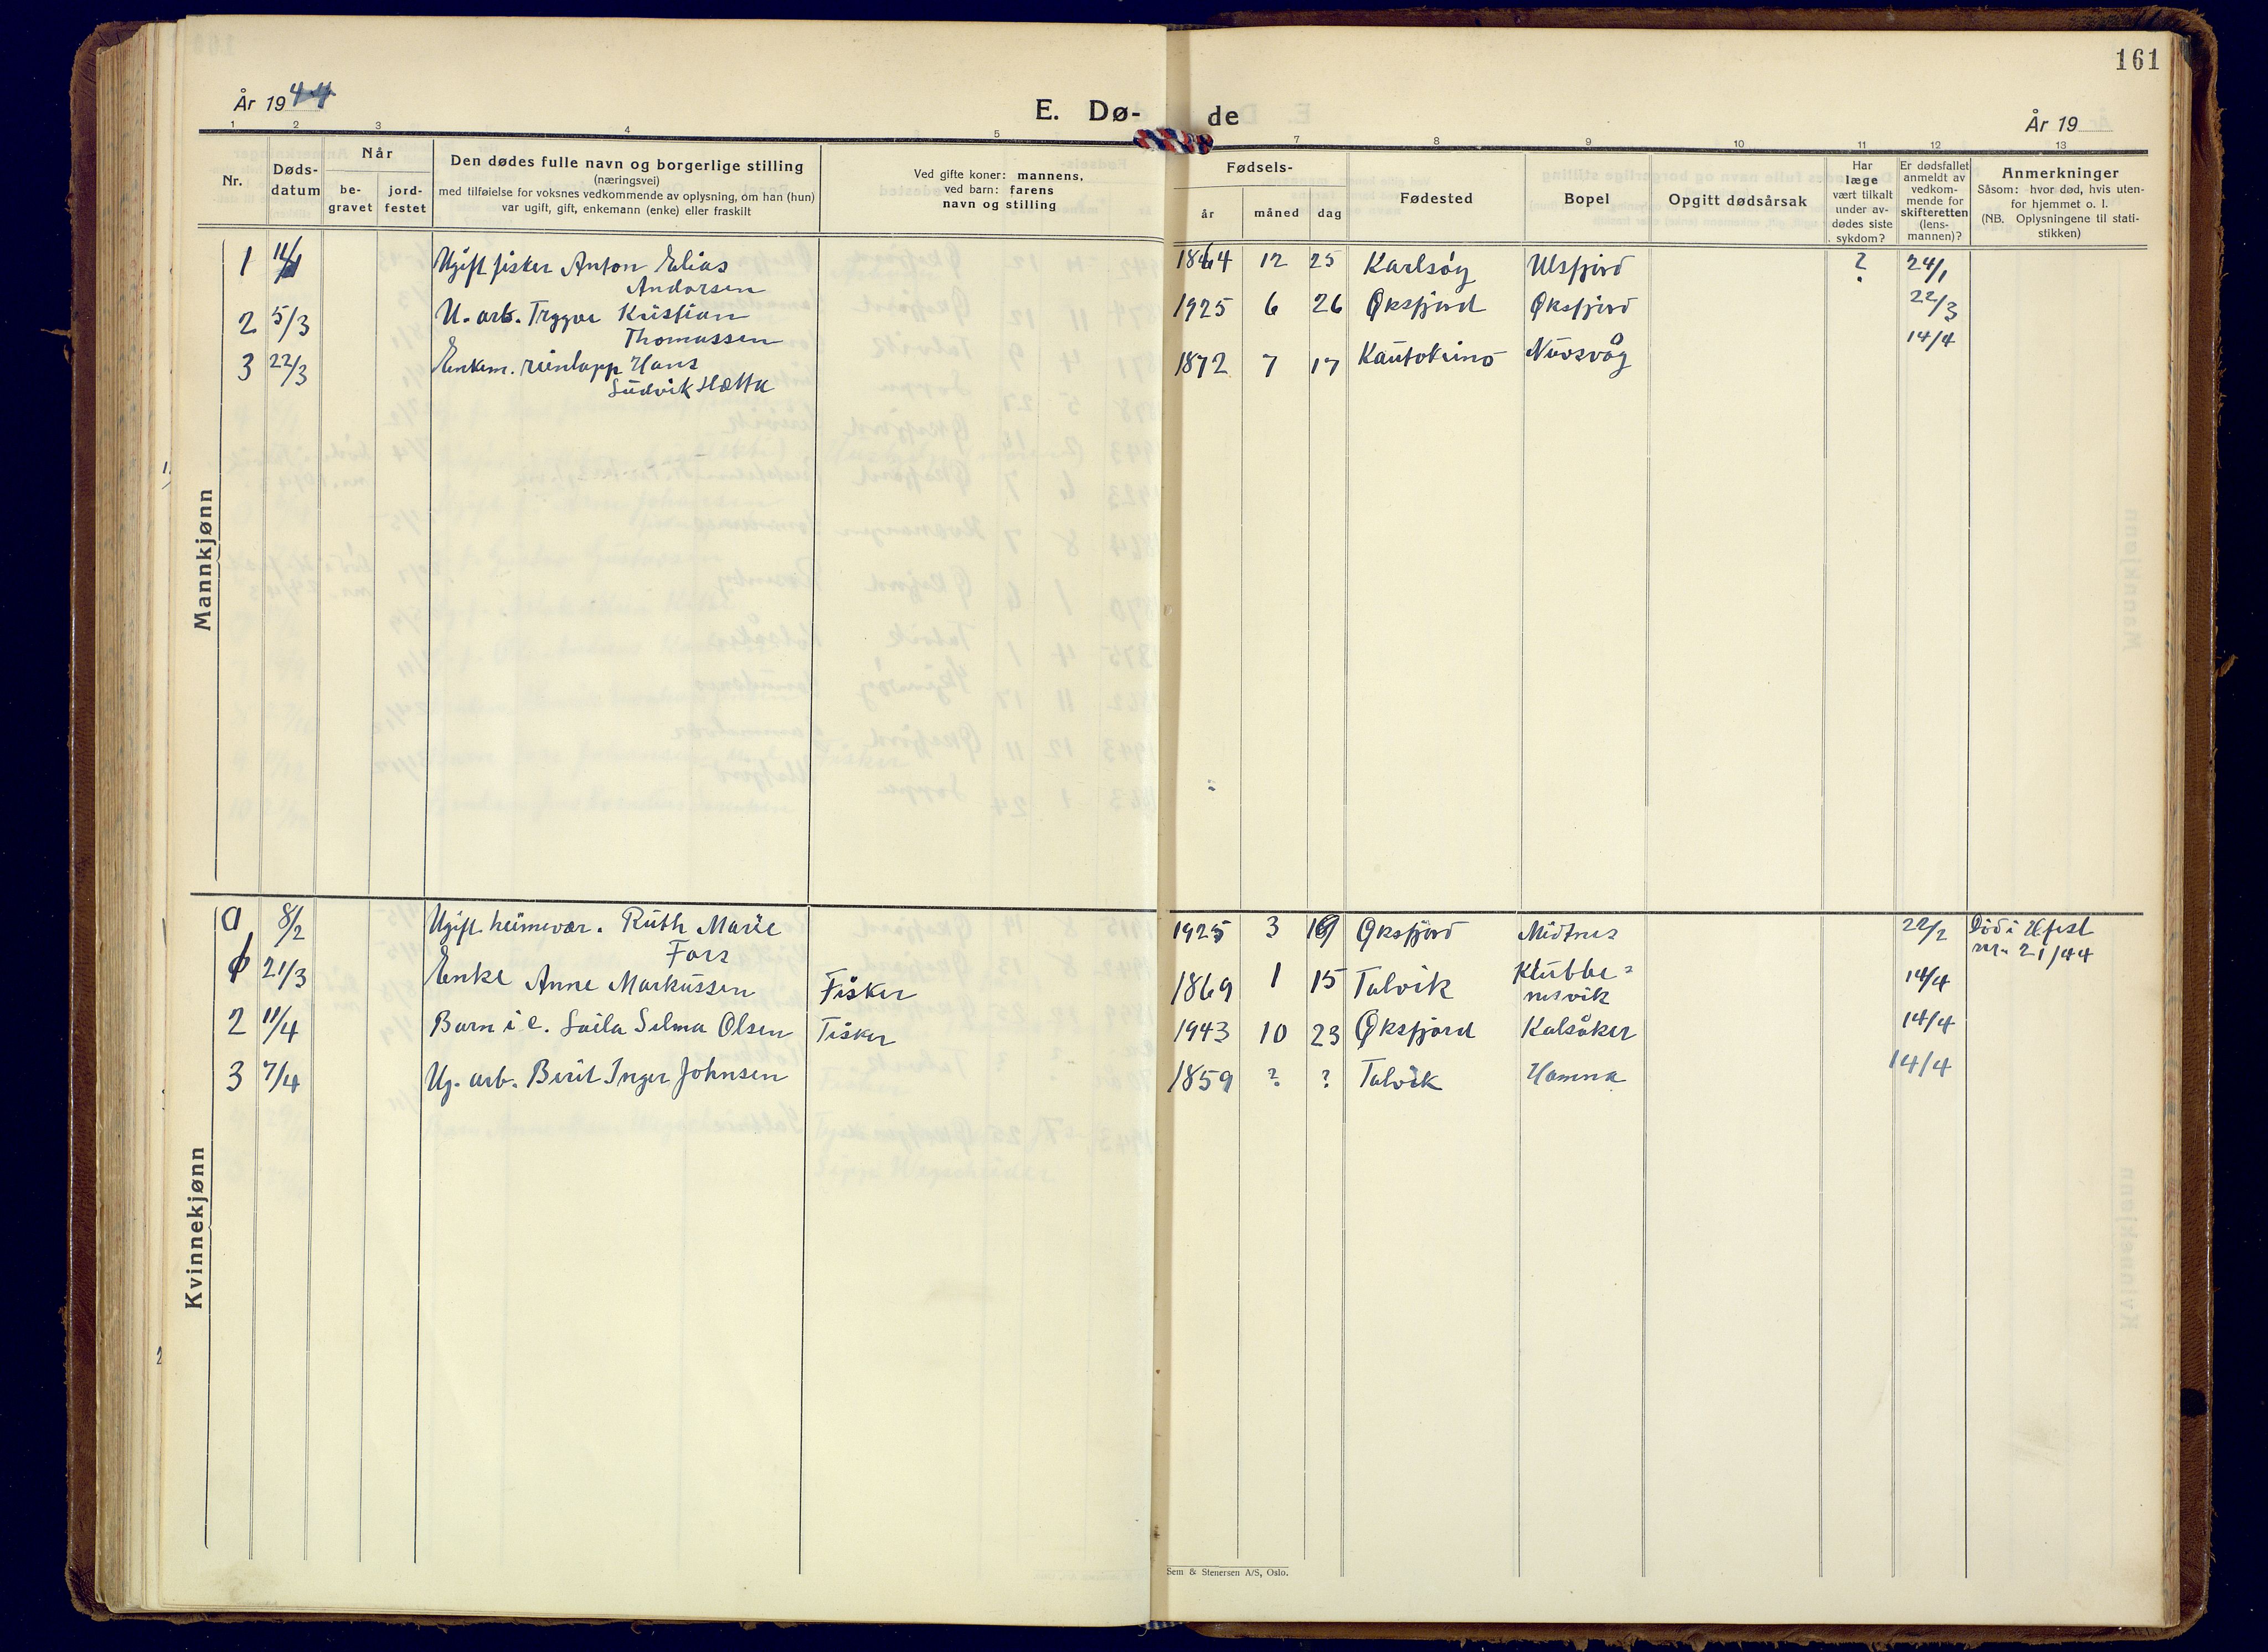 161
År 1944
E. Dø-
de
År 19
1 2 3 4 5 7 8 9 10 11 12 13
Nr.
Døds-
datum
Når
be-
gravet
jord-
festet
Den dødes fulle navn og borgerlige stilling
(næringsvei)
med tilføielse for voksnes vedkommende av oplysning, om han (hun)
var ugift, gift, enkemann (enke) eller fraskilt
Ved gifte koner: mannens,
ved barn: farens
navn og stilling
Fødsels-
år
måned
dag
Fødested
Bopel
Opgitt dødsårsak
Har
læge
vært tilkalt
under av-
dødes siste
sykdom?
Er dødsfallet
anmeldt av
vedkom-
mende for
skifteretten
(lens-
mannen)?
Anmerkninger
Såsom: hvor død, hvis uten-
for hjemmet o. l.
(NB. Oplysningene til stati-
stikken)
Mannkjønn
1 11/1 Ugift fisker Anton Elias 1864 12 25 Karlsøy Ulsfjord ? 24/1
Andorsen
2 5/3 U. arb. Trygve Kristian 1925 6 26 Øksfjord Øksfjord 22/3
Thomassen
3 22/3 Enkem. reinlapp Hans 1872 7 17 Kautokeino Nuvsvåg 14/4
Ludvik Hætta
Kvinnekjønn
a 8/2 Ugift heimevær. Ruth Marie 1925 3 19 Øksfjord Midtnes 22/2 Død i Hfest
Fors nr. 21/44
1 21/3 Enke Anne Markussen Fisker 1869 1 15 Talvik Klubbe= 14/4
nesvik
2 11/4 Barn i e. Laila Selma Olsen Fisker 1943 10 23 Øksfjord Kalsåker 14/4
3 7/4 Ug. arb. Berit Inger Johnsen 1859 ? ? Talvik Hamna 14/4
Sem & Stenersen A/S, Oslo.